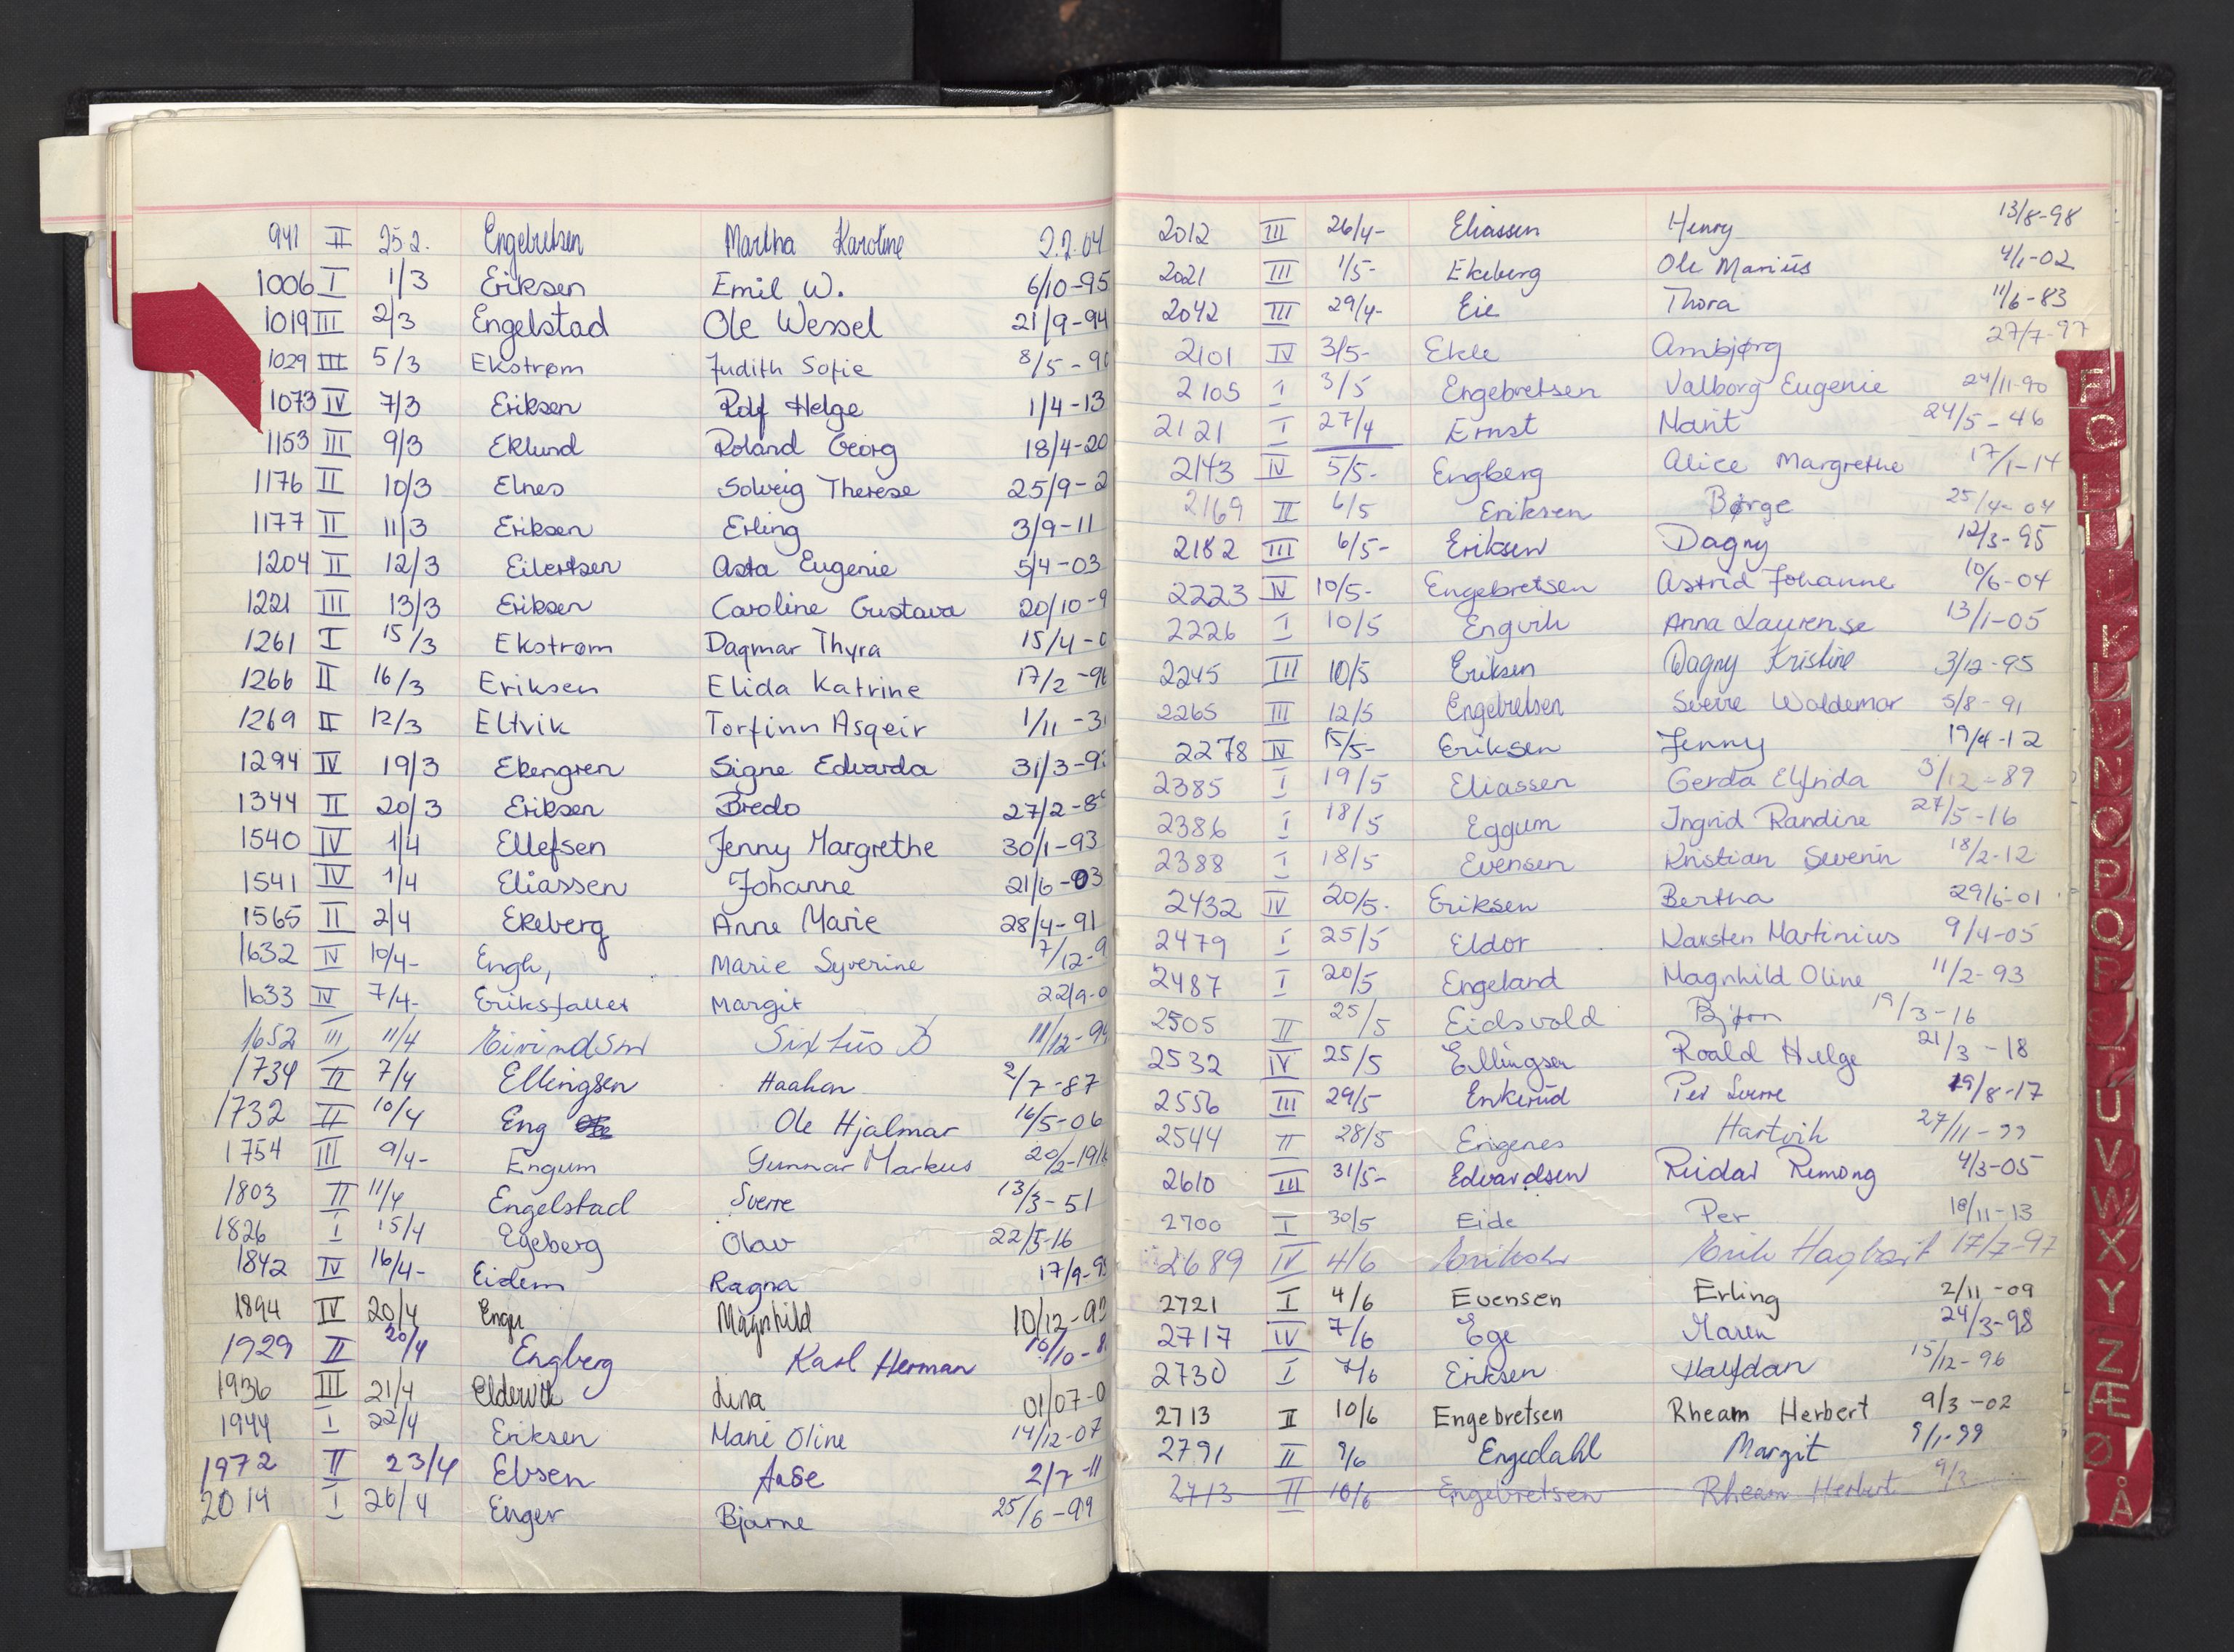 941 II 25 2. Engebretsen Martha Karoline 2.2.04
1006 I 1/3 Eriksen Emil W. 6/10-95
1019 III 2/3 Engelstad Ole Wessel 21/9-94
1029 III 5/3 Ekstrøm Judith Sofie 8/5-9
1073 IV 7/3 Eriksen Rolf Helge 1/4-13
1153 III 9/3 Eklund Roland Georg 18/4-20
1176 II 10/3 Elnes Solveig Therese 25/9-2
1177 II 11/3 Eriksen Erling 3/9-11
1204 II 12/3 Eilertsen Asta Eugenie 5/4-03
1221 III 13/3 Eriksen Caroline Gustava 20/10-9
1261 I 15/3 Ekstrøm Dagmar Thyra 15/4-0
1266 II 16/3 Eriksen Elida Katrine 17/2-96
1269 II 12/3 Eltvik Torfinn Asgeir 1/11-3
1294 IV 19/3 Ekengren Signe Edvarda 31/3-9
1344 II 20/3 Eriksen Bredo 27/2-8
1540 IV 1/4 Ellefsen Jenny Margrethe 30/1-93
1541 IV 1/4 Eliassen Johanne 21/6-03
1565 II 2/4 Ekeberg Anne Marie 28/4-91
1632 IV 10/4- Engh, Marie Syverine 7/12-9
1633 IV 7/4- Margit 22/9-0
1652 III 11/4 Eivindsen Sixtus B 11/12-94
1734 II 7/4 Ellingsen Haakon 2/7-87
1732 II 10/4 Eng Ole Hjalmar 16/5-06
1754 III 9/4- Engum Gunnar Markus 20/2-191
1803 II 11/4 Engelstad Sverre 13/3-51
1826 I 15/4 Egeberg Olav 22/5-16
1842 IV 16/4- Eidem Ragna 17/9-9
1894 IV 20/4 Magnhild 10/12-93
1929 II 20/4 Engberg Karl Herman 10/10-8
1936 III 21/4 Eldevik Lina 01/07-0
1944 I 22/4 Eriksen Marie Oline 14/12-07
1972 II 23/4 Ebsen Aase 2/7-11
2014 I 26/4 Enger Bjarne 25/6-99
2012 III 26/4- Eliassen Henry 13/8-98
2021 III 1/5- Ekeberg Ole Marius 4/1-02
2042 III 29/4- Eie Thora 11/6-83
2101 IV 3/5- Ekle Arnbjørg 27/7-97
2105 I 3/5 Engebretsen Valborg Eugenie 24/11-90
2121 I 27/4 Ernst Marit 24/5-46
2143 IV 5/5- Engberg Alice Margrethe 17/1-14
2169 II 6/5 Eriksen Børge 25/4-04
2182 III 6/5- Eriksen Dagny 12/3-95
2223 IV 10/5- Engebretsen Astrid Johanne 10/6-04
2226 I 10/5 Engvik Anna Laurense 13/1-05
2245 III 10/5 Eriksen Dagny Kristine 3/12-95
2265 III 12/5 Engebretsen Sverre Waldemar 5/8-91
2278 IV 15/5- Eriksen Jenny 19/4-12
2385 I 19/5 Eliassen Gerda Elfrida 3/12-89
2386 I 18/5 Eggum Ingrid Randine 27/5-16
2388 I 18/5 Evensen Kristian Severin 18/2-12
2432 IV 20/5- Eriksen Bertha 29/6-01
2479 I 25/5 Eldor Karsten Martinius 9/4-05
2487 I 20/5 Engeland Magnhild Oline 11/2-93
2505 II 25/5 Eidsvold Bjørn 19/3-16
2532 IV 25/5 Ellingsen Roald Helge 21/3-18
2556 III 29/5 Enkerud Per Sverre 19/8-17
2544 II 28/5 Engenes Hartvik 27/11-99
2610 III 31/5- Edvardsen Reidar Remong 4/3-05
2700 I 30/5 Eide Per 18/11-13
2689 IV 4/6 Eriksen Erik Hagbart 17/7-97
2721 I 4/6 Evensen Erling 2/11-09
2717 IV 7/6 Ege Maren 24/3-98
2730 I 7/6 Eriksen Halfdan 15/12-96
2713 II 10/6 Engebretsen Rheam Herbert 9/3-02
2791 II 9/6 Engedahl Margit 9/1-99
2713 II 10/6 Engebretsen Rheam Herbert 9/3
F
G
H
I
K
L
N
O
P
Q
R
T
U
V
W
X
Y
Z
Æ
Ø
Å